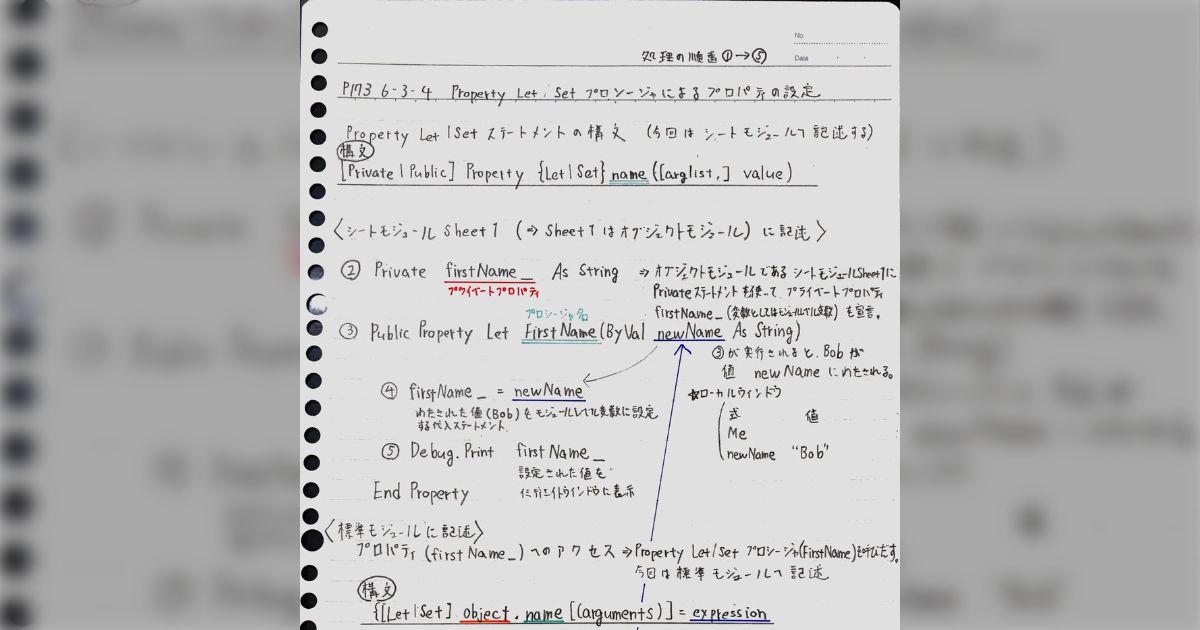 No
処理の順番①→⑤
Date
P173 6-3-4 Property Let/Set プロシージャによるプロパティの設定
Property Let/Set ステートメントの構文 (今回はシートモジュールで記述する)
構文
[Private | Public] Property {Let|Set} name([arglist,] value)
〈シートモジュール Sheet1 (⇒ Sheet1はオブジェクトモジュール) に記述〉
② Private firstName_ As String ⇒ オブジェクトモジュールであるシートモジュールSheet1に
プライベートプロパティ
Privateステートメントを使って、プライベートプロパティ
firstName_ (変数としてはモジュールレベル変数) を宣言。
プロシージャ名
③ Public Property Let FirstName(ByVal newName As String)
③が実行されると、Bobが
値 newName にわたされる。
④ firstName_ = newName
わたされた値(Bob)をモジュールレベル変数に設定
する代入ステートメント
☆ローカルウィンドウ
式 値
Me
newName "Bob"
⑤ Debug.Print firstName_
設定された値を
イミディエイトウインドウに表示
End Property
〈標準モジュールに記述〉
プロパティ(firstName_)へのアクセス⇒Property Let/Set プロシージャ(FirstName)を呼びだす。
今回は標準モジュールで記述
構文
{[Let|Set] object.name[(arguments)] = expression